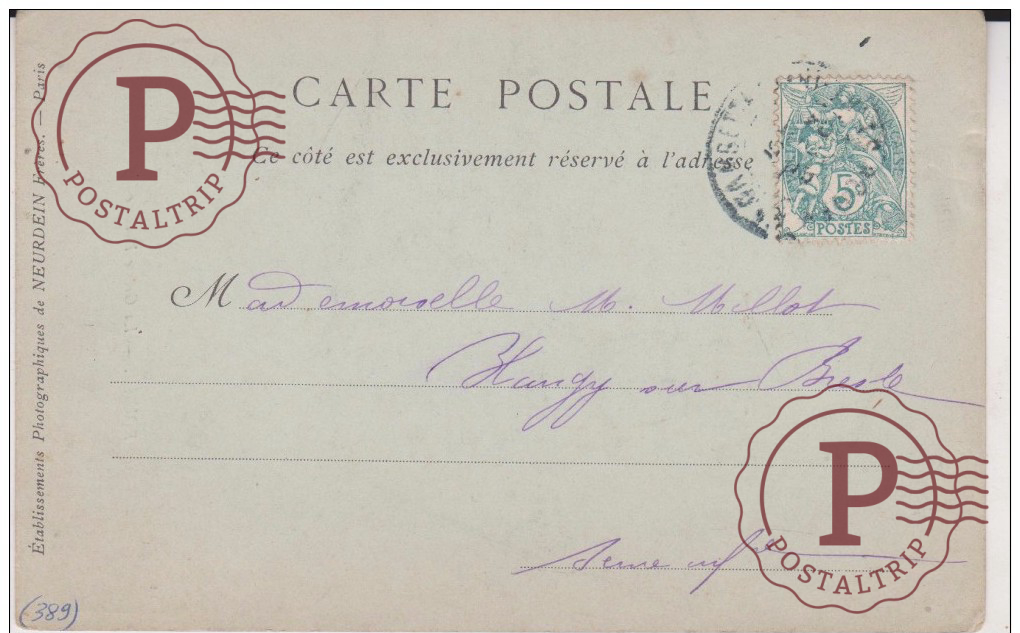 CARTE POSTALE
Ce côté est exclusivement réservé à l'adresse
5
POSTES
Mademoiselle M. Millot
Blangy sur Bresle
Seine infre
Établissements Photographiques de NEURDEIN Frères. — Paris
(389)
P
POSTALTRIP
P
POSTALTRIP